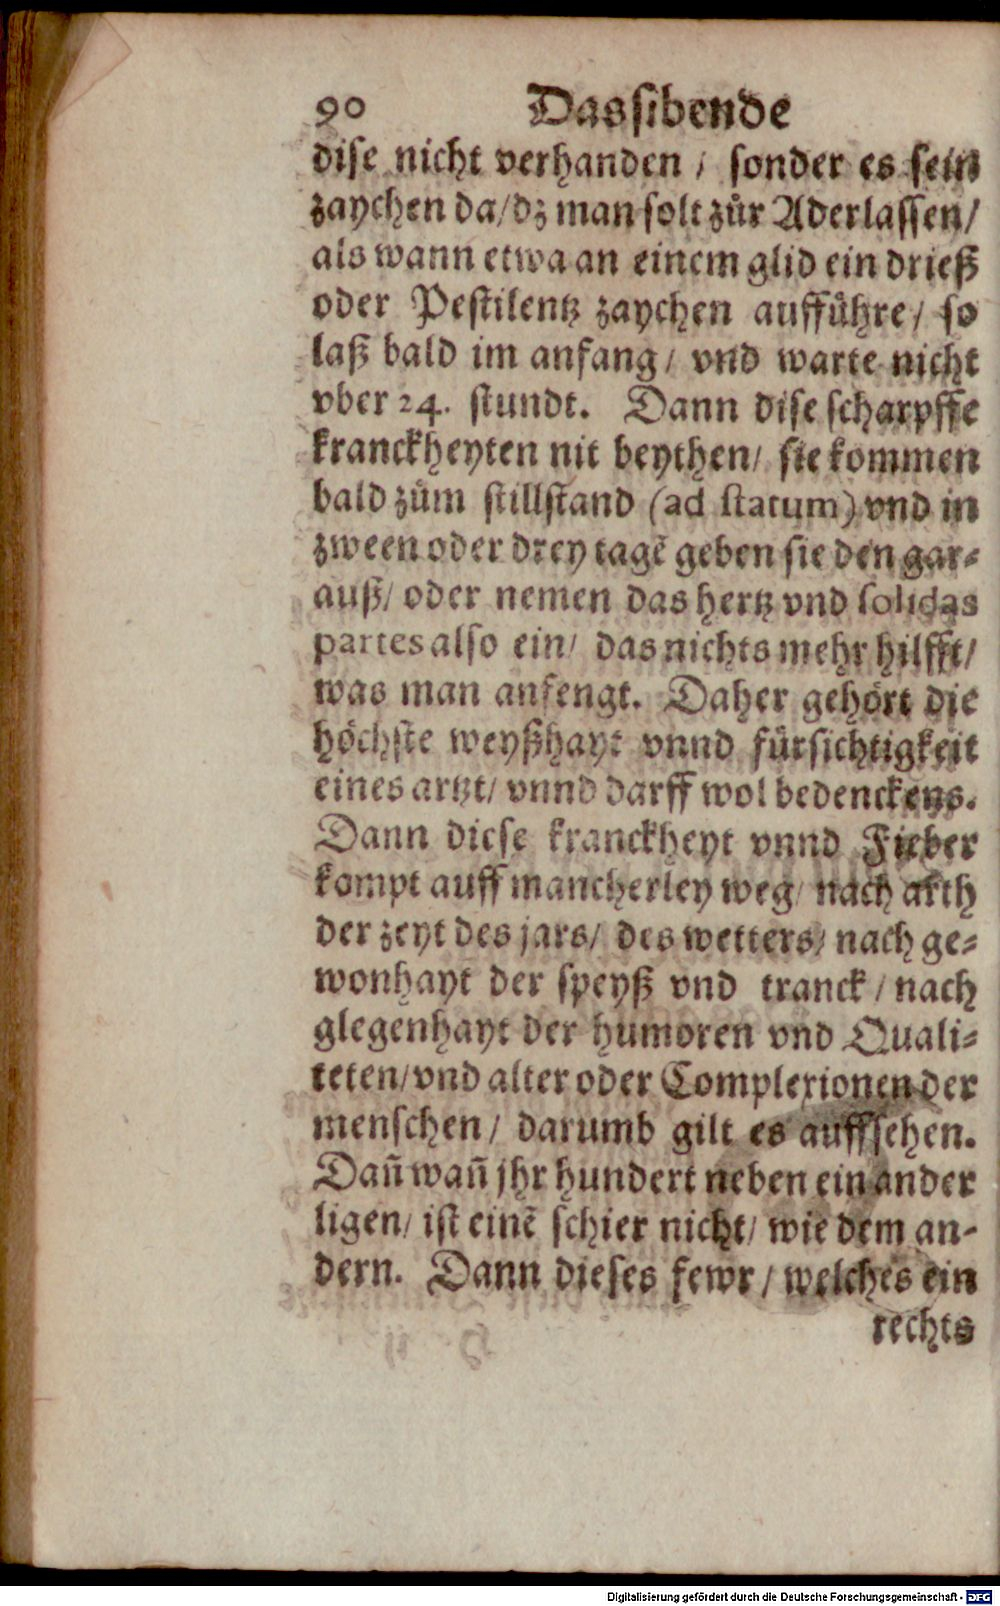 90 Das sibende
dise nicht verhanden / sonder es sein
zaychen da/dz man solt zůr Aderlassen/
als wann etwa an einem glid ein drieß
oder Pestilentz zaychen auffführe/ so
laß bald im anfang/ vnd warte nicht
vber 24. stundt. Dann dise scharpffe
kranckheyten nit beythen/ sie kommen
bald zům stillstand (ad statum) vnd in
zween oder drey tagẽ geben sie den gar⸗
auß/ oder nemen das hertz vnd solidas
partes also ein/ das nichts mehr hilfft/
was man anfengt. Daher gehört die
höchste weyßhayt vnnd fürsichtigkeit
eines artzt/ vnnd darff wol bedenckens.
Dann diese kranckheyt vnnd Fieber
kompt auff mancherley weg/ nach arth
der zeyt des jars/ des wetters/ nach ge⸗
wonhayt der speyß vnd tranck / nach
glegenhayt der humoren vnd Quali⸗
teten/vnd alter oder Complexionen der
menschen/ darumb gilt es auffsehen.
Dañ wañ jhr hundert neben ein ander
ligen/ ist einẽ schier nicht/ wie dem an-
dern. Dann dieses fewr / welches ein
rechts
Digitalisierung gefördert durch die Deutsche Forschungsgemeinschaft - DFG